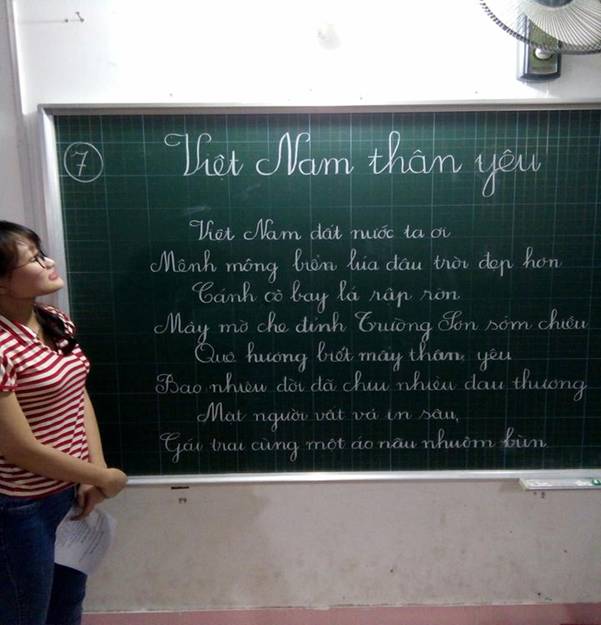 7
Việt Nam thân yêu
Việt Nam đất nước ta ơi
Mênh mông biển lúa đâu trời đẹp hơn
Cánh cò bay lả rập rờn
Mây mờ che đỉnh Trường Sơn sớm chiều
Quê hương biết mấy thân yêu
Bao nhiêu đời đã chịu nhiều đau thương
Mặt người vất vả in sâu,
Gái trai cùng một áo nâu nhuộm bùn